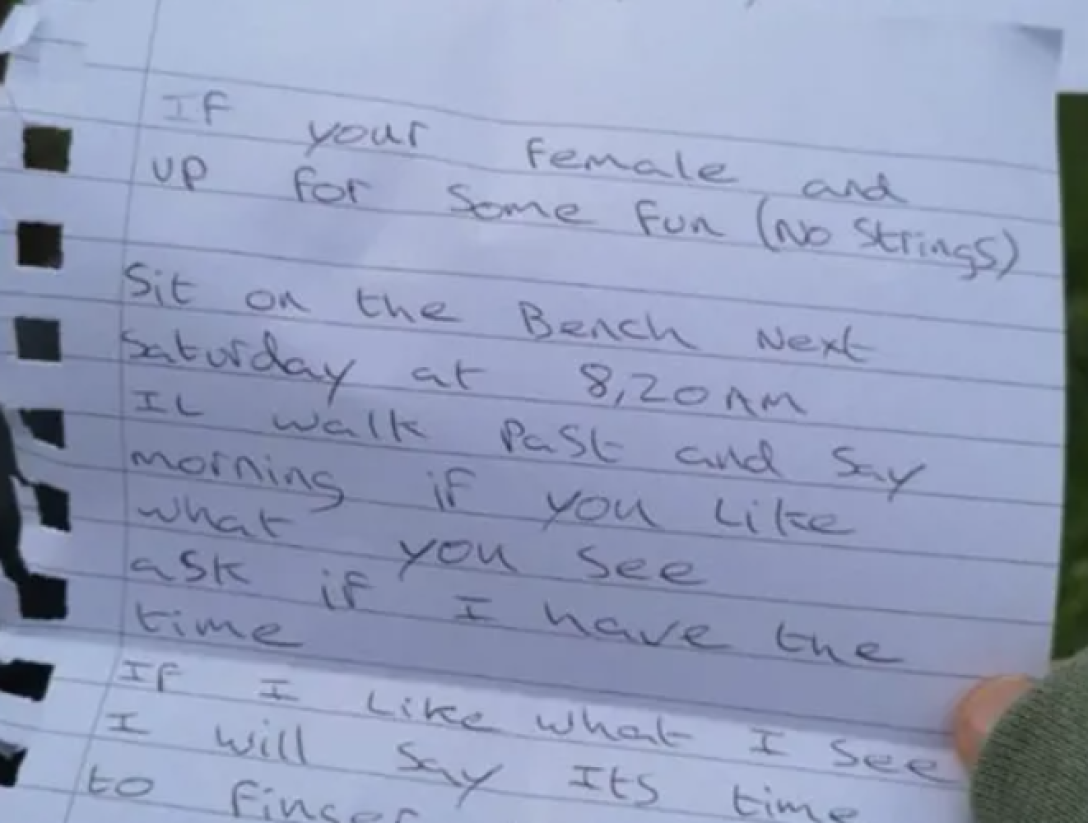 IF your female and
up for some fun (No Strings)
Sit on the Bench Next
Saturday at 8,20 AM
IL walk Past and Say
morning if you Like
what you see
ask if I have the
time
If I Like what I see
I will say Its time
to finger